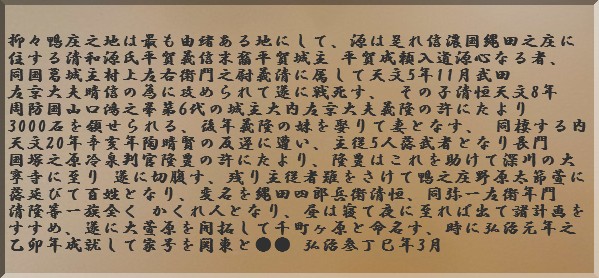 抑々鴨庄之地は最も由緒ある地にして、源は是れ信濃国縄田之庄に
住する清和源氏平賀義信末裔平賀城主 平賀成頼入道源心なる者、
同国葛城主村上左右衛門之尉義清に属して天文5年11月武田
左京大夫晴信の為に攻められて遂に戦死す、 その子清恒天文8年
周防国山口鴻之峯第6代の城主大内左京大夫義隆の許にたより
3000石を領せられる、 後年義隆の妹を娶りて妻となす、 同棲する内
天文20年辛亥年陶晴賢の反逆に遭い、主従5人落武者となり長門
国塚之原冷泉判官隆豊の許にたより、隆豊はこれを助けて深川の大
寧寺に至り 遂に切腹す、残り主従者難をさけて鴨之庄野原太郎萱に
落延びて百姓となり、変名を縄田四郎兵衛清恒、同弥一左衛年門
清隆等一族全く かくれ人となり、昼は寝て夜に至れば出て諸計画を
すすめ、遂に大萱原を開拓して千町ヶ原と命名す、時に弘治元年之
乙卯年成就して家号を関東と●● 弘治参丁巳年3月